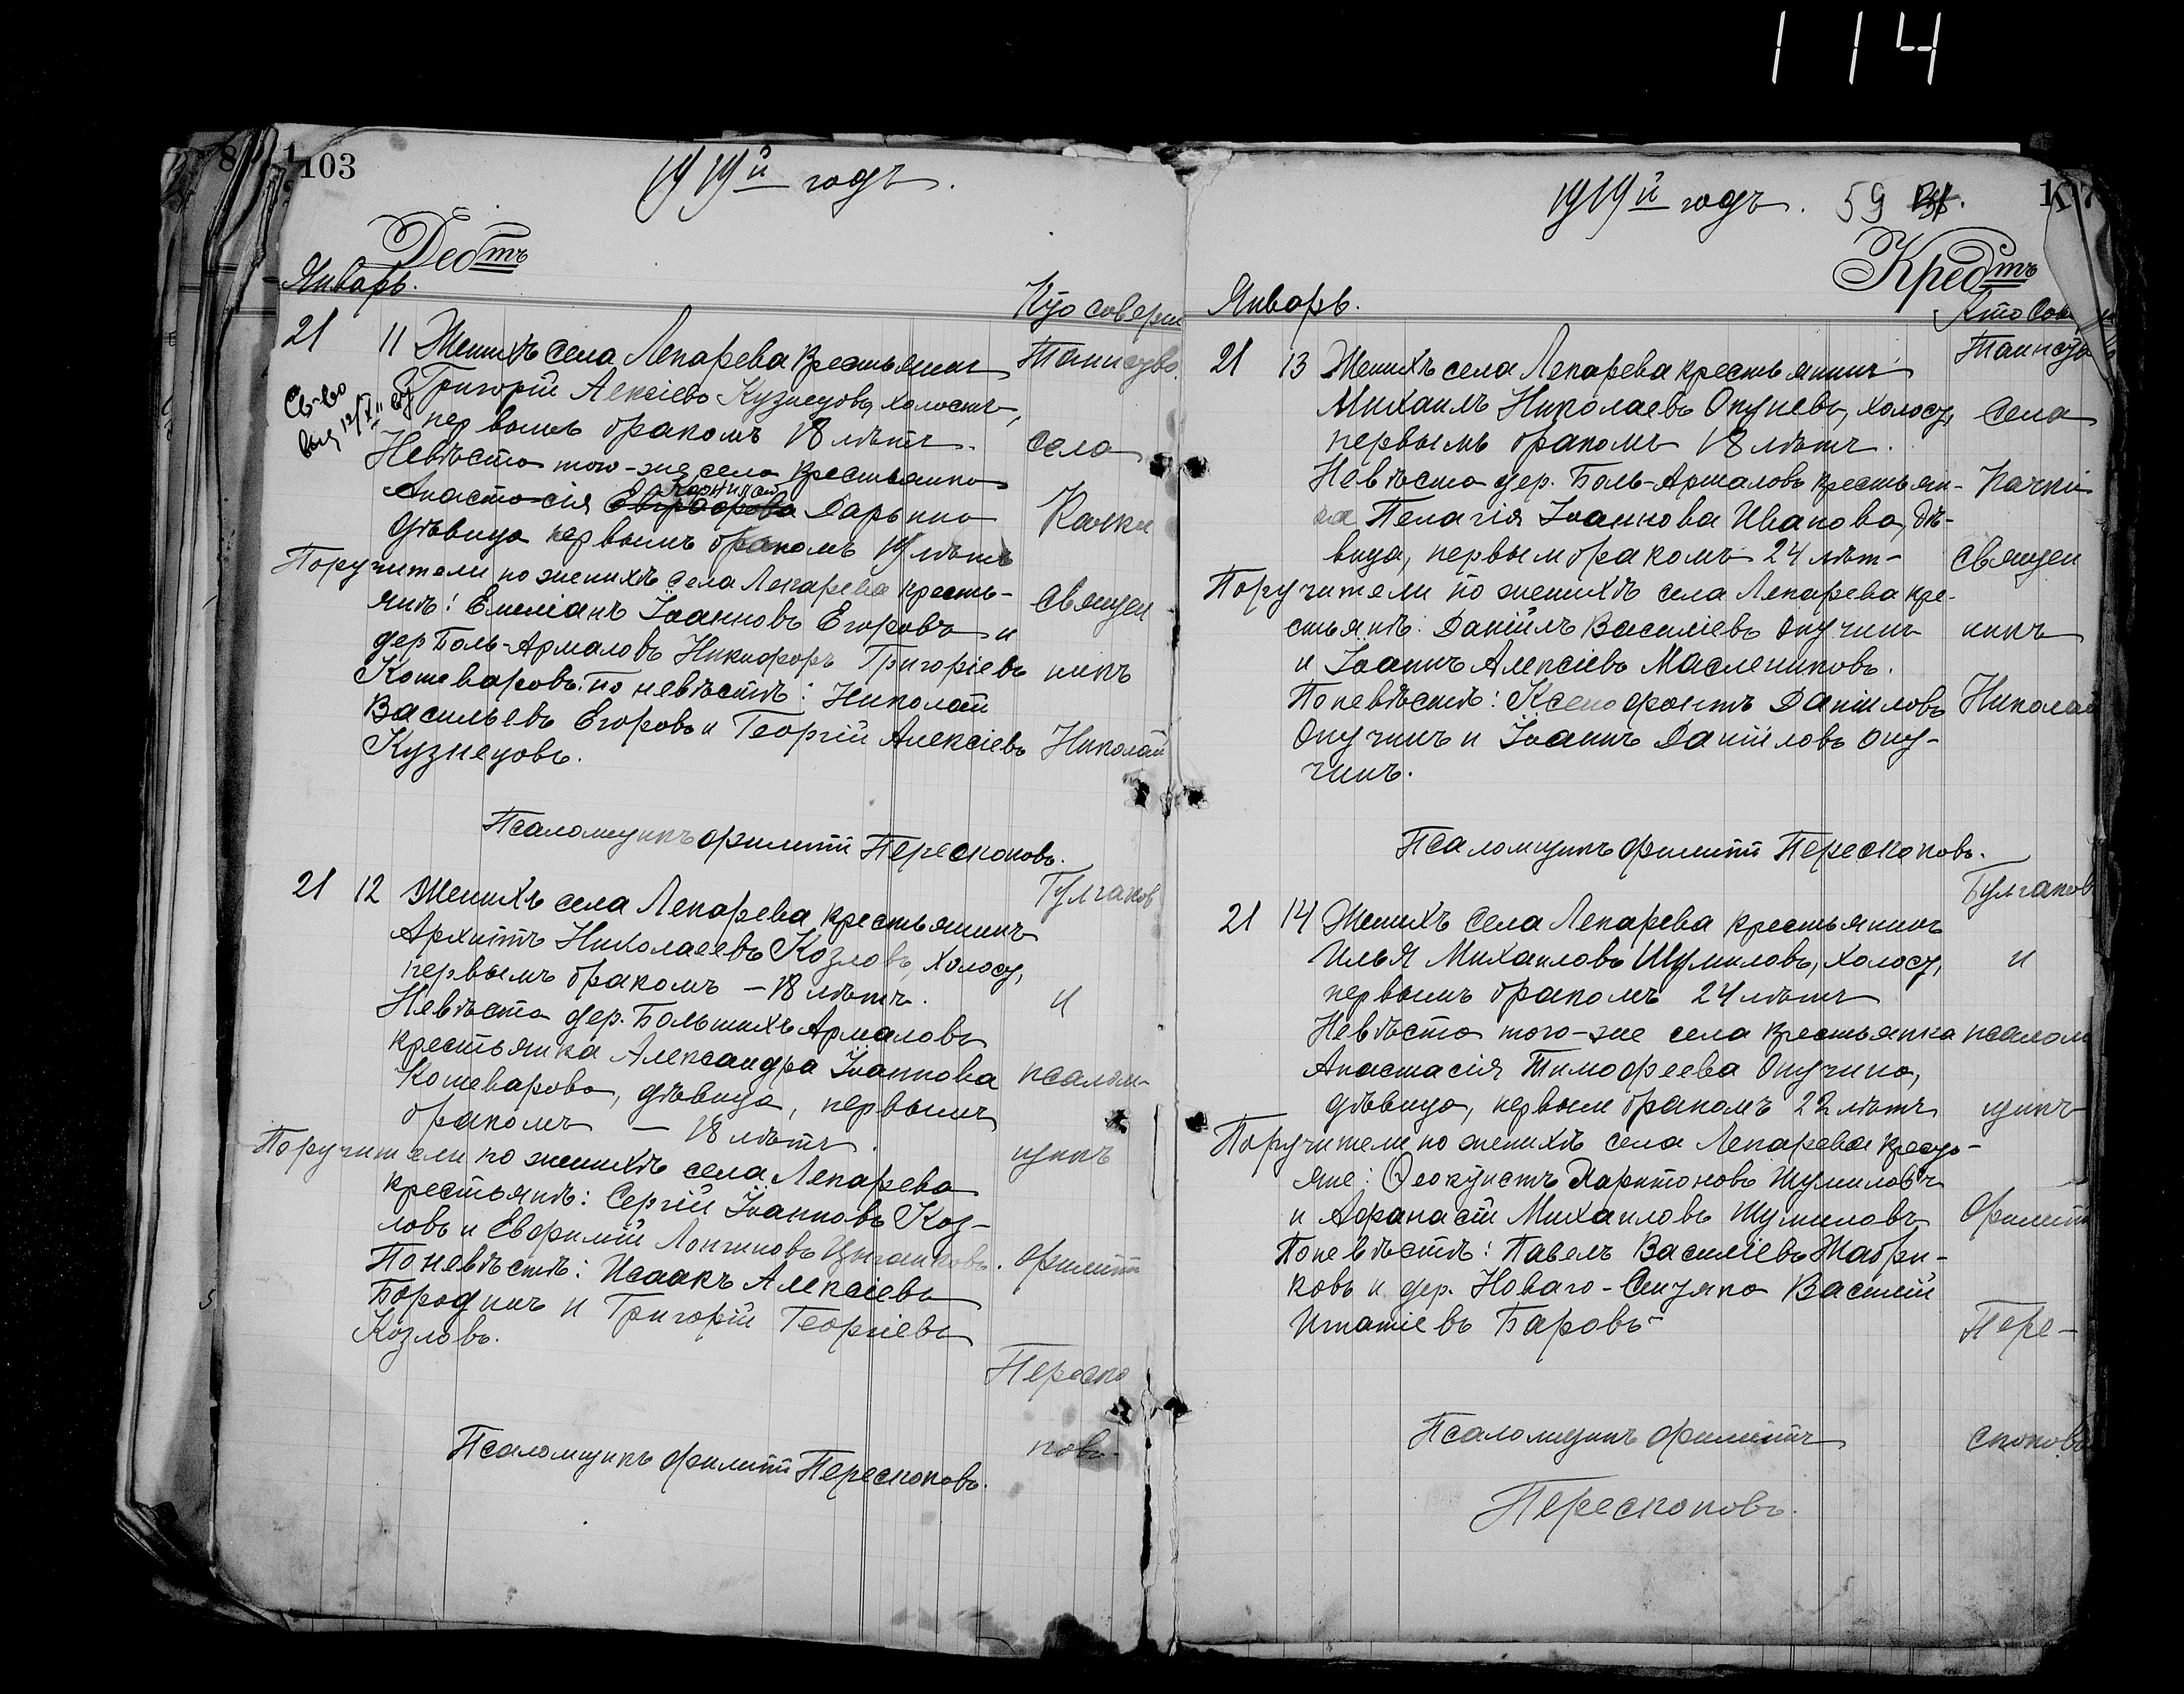 114
103
1919й годъ.
Дебтъ
Январь.
Кто соверш
Таинство.
21 11 Женихъ села Лекарева крестьянинъ
Григорій Алексіевъ Кузнецовъ, холостъ,
первымъ бракомъ 18 лѣтъ.
Св-во
выд 12/XII
Невѣста того-же села крестьянка
Корнилова
Анастасія Евграфова Дарькина
дѣвица первымъ бракомъ 19 лѣтъ
Поручители по женихѣ села Лекарева кресть-
янѣ: Емеліанъ Іоанновъ Егоровъ и
дер Боль-Армаловъ Никифоръ Григоріевъ
Кошеваровъ. по невѣстѣ: Николай
Васильевъ Егоровъ и Георгій Алексіевъ
Кузнецовъ.
села
Качки
священ
никъ
Николай
Псаломщикъ Филиппъ Перескоковъ.
Булгаков
21 12 Женихъ села Лекарева крестьянинъ
Архиппъ Николаевъ Козловъ, холост,
первымъ бракомъ - 18 лѣтъ.
Невѣста дер. Большихъ Армаловъ
крестьянка Александра Іоаннова
Кошеварова, дѣвица, первымъ
бракомъ - 18 лѣтъ.
Поручители по женихѣ села Лекарева
крестьянѣ: Сергій Іоанновъ Коз-
ловъ и Евфимій Лонгиновъ Цыганковъ.
По невѣстѣ: Исаакъ Алексіевъ
Бородинъ и Григорій Георгіевъ
Козловъ.
и
псалом-
щикъ
Филиппъ
Переско
ковъ.
Псаломщикъ Филиппъ Перескоковъ.
1919й годъ. 59
Кредтъ
Январь.
Кто Сов
Таинств
21 13 Женихъ села Лекарева крестьянинъ
Михаилъ Николаевъ Окуневъ, холост,
первымъ бракомъ 18 лѣтъ.
Невѣста дер. Боль-Армаловъ крестьян-
ка Пелагія Іоаннова Иванова, дѣ-
вица, первым бракомъ 24 лѣт-
Поручители по женихѣ села Лекарева кре-
стьянѣ: Даніилъ Василіевъ Опучинъ
и Іоаннъ Алексіевъ Маслениковъ.
По невѣстѣ: Ксенофонтъ Даніиловъ
Опучинъ и Іоаннъ Даніиловъ Опу-
чинъ.
Села
Качки
священ
никъ
Николай
Псаломщикъ Филиппъ Перескоковъ.
Булгаков
21 14 Женихъ Села Лекарева крестьянинъ
Илья Михаиловъ Шумиловъ, холост,
первымъ бракомъ 24 лѣтъ
Невѣста того-же села крестьянка
Анастасія Тимофеева Опучина,
дѣвица, первым бракомъ 22 лѣтъ
Поручители по женихѣ села Лекарева крест-
яне: Ѳеоктистъ Харитоновъ Шумиловъ
и Афанасій Михаиловъ Шумиловъ
По невѣстѣ: Павелъ Василіевъ Жабри-
ковъ и дер. Новаго- Василій
Игнатіевъ Баровъ
и
псалом
щикъ
Филиппъ
Пере-
скоковъ
Псаломщикъ Филиппъ
Перескоковъ.